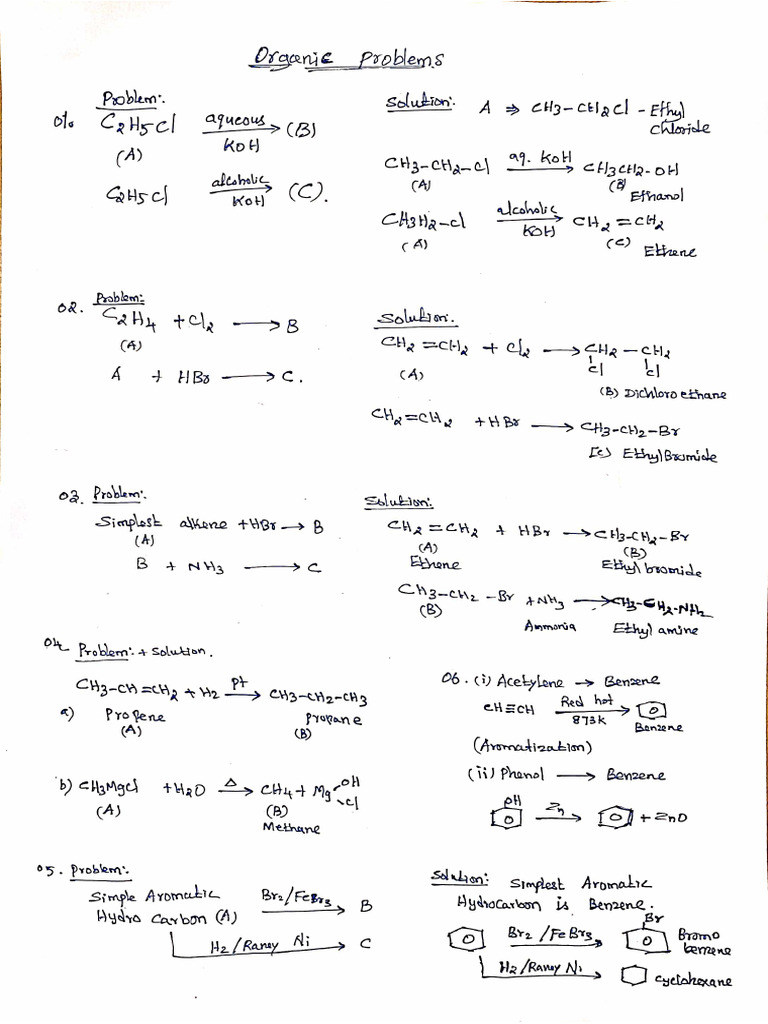 Organic Problems
Problem:-
01. C2H5Cl aqueous KOH → (B)
(A)
C2H5Cl alcoholic KOH → (C).
Solution: A ⇒ CH3-CH2Cl - Ethyl chloride
CH3-CH2-Cl aq. KOH → CH3CH2-OH
(A) (B) Ethanol
CH3H2-Cl alcoholic KOH → CH2=CH2
(A) (C) Ethene
02. Problem:
C2H4 + Cl2 → B
(A)
A + HBr → C.
Solution.
CH2=CH2 + Cl2 → CH2-CH2
Cl Cl
(A) (B) Dichloro ethane
CH2=CH2 + HBr → CH3-CH2-Br
[C) EthylBromide
03. Problem:-
Simplest alkene + HBr → B
(A)
B + NH3 → C
Solution:
CH2=CH2 + HBr → CH3-CH2-Br
(A) (B)
Ethene Ethyl bromide
CH3-CH2-Br + NH3 → CH3-CH2-NH2
(B) Ammonia Ethyl amine
04. Problem: + Solution.
CH3-CH=CH2 + H2 Pt → CH3-CH2-CH3
a) Propene propane
(A) (B)
b) CH3MgCl + H2O Δ → CH4 + Mg OH Cl
(A) (B)
Methane
06. (i) Acetylene → Benzene
CH≡CH Red hot 873K → Benzene
(Aromatization)
(ii) Phenol → Benzene
OH Zn → + ZnO
05. Problem:-
Simple Aromatic Br2/FeBr3 → B
Hydro Carbon (A)
H2/Raney Ni → C
Solution: Simplest Aromatic
HydroCarbon is Benzene.
Br2/FeBr3 → Br Bromo benzene
H2/Raney Ni → cyclohexane